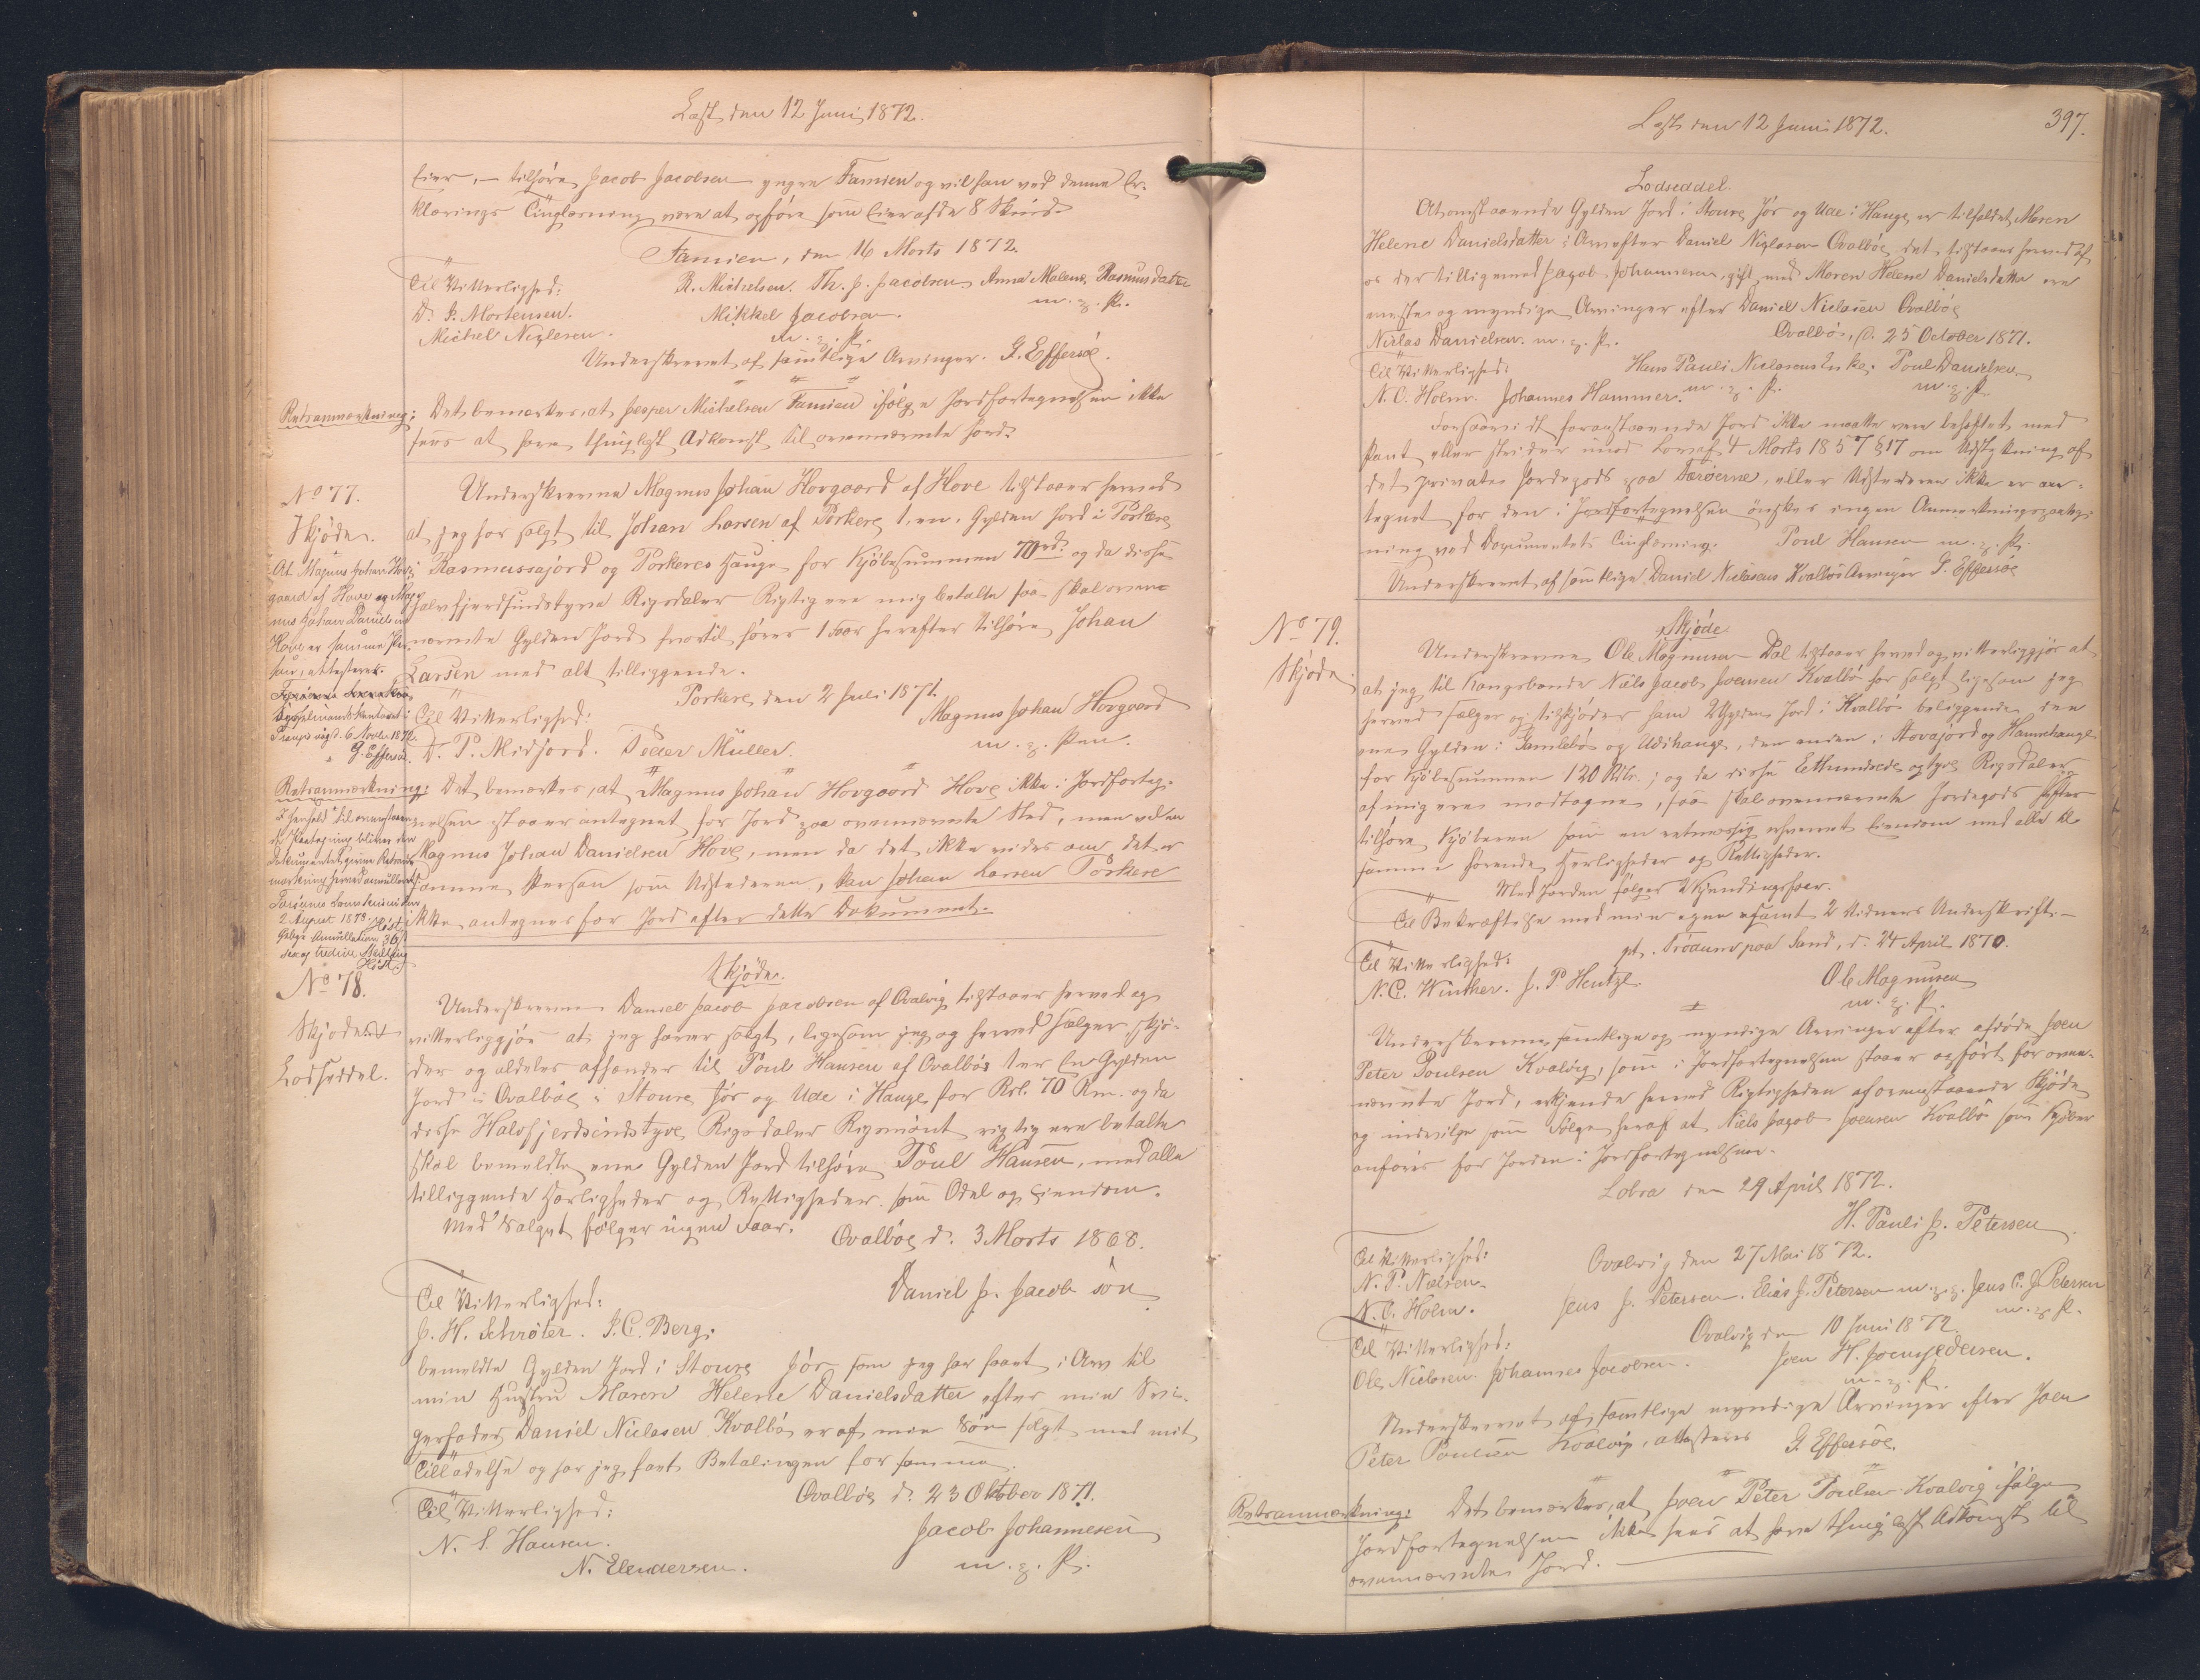 Læst den 12 Juni 1872.
Eier, – tilhøre Jacob Jacobsen yngre Famien og vil han ved denne Er-
klærings Tinglæsning være at opføre som Eier af de 8 Skind.
Famien, den 16 Marts 1872.
Til Vitterlighed: R. Michelsen. Th. J. Jacobsen Anna Malene Rasmusdatter
D. P. Mortensen. Mikkel Jacobsen. m. p. P.
Michel Niclesen. m. p. P.
Underskrevet af samtlige Arvinger. G. Effersøe.
Retsanmærkning: Det bemærkes, at Jesper Michelsen Famien ifølge Jordfortegnelsen ikke
sees at have thinglyst Adkomst til ovennævnte Jord.
No 77.
Skjøde.
Underskrevne Magnus Johan Hovgaard af Hove tilstaaer herved
at jeg har solgt til Johan Larsen af Porkere 1, en, Gylden Jord i Porkere
i Rasmussajord og Porkeres Hauge for Kjøbesummen 70 rd. og da disse
halvfjerdsindstyve Rigsdaler Rigtig ere mig betalte saa skal oven-
nævnte Gylden Jord hvortil hører 1 Faar herefter tilhøre Johan
Larsen med alt tilliggende.
Porkere, den 2 Juli 1871.
Til Vitterlighed: Magnus Johan Hovgaard
D. P. Midjord. Peder Müller. m. p. Pen.
At Magnus Johan Hov-
gaard af Hove og Mag-
nus Johan Danielsen
Hove er samme Per-
son, attesteres.
Sysselmandskontoret i
Trangisvaag d. 6 Novbr 1872.
G. Effersøe.
Retsanmærkning: Det bemærkes, at Magnus Johan Hovgaard Hove ikke i Jordforteg-
nelsen staaer antegnet for Jord paa ovennævnte Sted, men vel en
Magnus Johan Danielsen Hove, men da det ikke vides om det er
samme Person som Udstederen, kan Johan Larsen Porkere
ikke antegnes for Jord efter dette Dokument.
I Henhold til ovenstaaen-
de Paategning bliver den
Dokumentet givne Retsan-
mærkning herved annulleret
2 August 1873. Høst.
No 78.
Skjøde &
Lodseddel.
Skjøde.
Underskrevne Daniel Jacob Jacobsen af Qvalvig tilstaaer herved og
vitterliggjør at jeg haver solgt, ligesom jeg og herved sælger skjø-
der og aldeles afhænder til Poul Hansen af Qvalbøe 1 er En Gylden
Jord i Qvalbøe i Stoure Jør og Ude i Hauge for Rd. 70 Rm. og da
disse Halvfjerdsindstyve Rigsdaler Rigsmønt rigtig ere betalte
skal bemeldte ene Gylden Jord tilhøre Poul Hansen, med alle
tilliggende Herligheder og Rettigheder som Odel og Eiendom.
Med Salget følger ingen Faar.
Qvalbøe d. 3 Marts 1868.
Til Vitterlighed: Daniel J. Jacob søn
J. H. Schrøter. J. C. Berg.
bemeldte Gylden Jord i Stoure Jør som jeg har faaet i Arv til
min Hustru Maren Helene Danielsdatter efter min Svi-
gerfader Daniel Niclasen Kvalbø er af min Søn solgt med mit
Tilladelse og har jeg faaet Betalingen for samme.
Qvalbøe d. 23 Oktober 1871.
Til Vitterlighed: Jacob Johannesen
N. S. Hansen. m. p. P.
N. Elendersen.
Læst den 12 Juni 1872. 397.
Lodseddel.
At omstaaende Gylden Jord i Stoure Jør og Ude i Hauge er tilfaldet Maren
Helene Danielsdatter i Arv efter Daniel Niclasen Qvalbøe, det tilstaaes herved af
os der tilligemed Jacob Johannesen, gift med Maren Helene Danielsdatter ere
eneste og myndige Arvinger efter Daniel Niclasen Qvalbøe
Qvalbøe, d. 25 October 1871.
Niclas Danielsen. m. p. P.
Til Vitterlighed: Hans Pauli Niclasens Enke. Poul Danielsen.
N. C. Holm. Johannes Hammer. m. p. P. m. p. P.
Forsaavidt foranstaaende Jord ikke maatte være behæftet med
Pant eller strider imod Loven af 4 Marts 1857 § 17 om Udstykning af
det private Jordegods paa Færøerne, eller Udstederen ikke er an-
tegnet for den i Jordfortegnelsen ønskes ingen Anmærkningspaateg-
ning ved Documentets Tinglæsning. Poul Hansen m. p. P.
Underskrevet af samtlige Daniel Niclasens Kvalbøe Arvinger G. Effersøe
No 79.
Skjøde
Skjøde
Underskrevne Ole Magnusen Dal tilstaaer herved og vitterliggjør at
at jeg til Kongsbonde Niels Jacob Joensen Kvalbø har solgt ligesom jeg
herved sælger og tilskjøder ham 2 Gylden Jord i Kvalbø beliggende den
ene Gylden i Gamlebø og Udihauge, den anden i Stovajord og Hamrehauge
for Kjøbesummen 120 Rdlr.; og da disse Ethundrede og tyve Rigsdaler
af mig ere modtagne, saa skal ovennævnte Jordegods herefter
tilhøre Kjøberen som en retmæssig erhvervet Eiendom med alle til
samme hørende Herligheder og Rettigheder.
Med Jorden følger 2 Gyndingsfaar.
Til Bekræftelse med min egen samt 2 Vidners Underskrift. –
pt. Trødum paa Sand, d. 24 April 1870.
Til Vitterlighed:
N. C. Winther. J. P. Hentze. Ole Magnusen
m. p. P.
Underskrevne samtlige og myndige Arvinger efter afdøde Joen
Peter Poulsen Kvalvig, som i Jordfortegnelsen staaer opført for oven-
nævnte Jord, erkjende herved Rigtigheden af ovenstaaende Skjøde
og indvilge som Følge heraf at Niels Jacob Joensen Kvalbø som Kjøber
anføres for Jorden i Jordfortegnelsen.
Lobra den 29 April 1872.
H. Pauli J. Petersen
Til Vitterlighed: Qvalvig den 27 Mai 1872.
N. P. Nielsen.
N. C. Holm. Jens J. Petersen. Elias J. Petersen m. p. P. Jens C. J. Petersen
m. p. P.
Til Vitterlighed: Qvalvig den 10 Juni 1872.
Ole Niclasen. Johannes Jacobsen. Joen H. Joenpedersen.
m. p. P.
Underskrevet af samtlige myndige Arvinger efter Joen
Peter Poulsen Kvalvig, attesteres G. Effersøe.
Retsanmærkning: Det bemærkes, at Joen Peter Poulsen Kvalvig ifølge
Jordfortegnelsen ikke sees at have thinglyst Adkomst til
ovennævnte Jord.